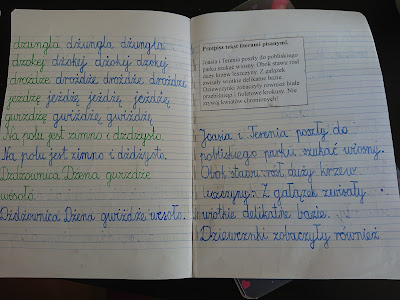 dżungla dżungla dżungla
dżokej dżokej dżokej dżokej
drożdże drożdże drożdże drożdże
jeżdżę jeżdżę, jeżdżę, jeżdżę,
gwiżdżę gwiżdżę, gwiżdżę,
Na polu jest zimno i dżdżysto.
Na polu jest zimno i dżdżysto.
Dżdżownica Dżena gwiżdże
wesoło.
Dżdżownica Dżena gwiżdże wesoło.
Przepisz tekst literami pisanymi.
Joasia i Terenia poszły do pobliskiego
parku szukać wiosny. Obok stawu rósł
duży krzew leszczyny. Z gałązek
zwisały wiotkie delikatne bazie.
Dziewczynki zobaczyły również białe
przebiśniegi i fioletowe krokusy. Nie
zrywaj kwiatów chronionych!
Joasia i Terenia poszły do
pobliskiego parku szukać wiosny.
Obok stawu rósł duży krzew
leszczyny. Z gałązek zwisały
wiotkie delikatne bazie.
Dziewczynki zobaczyły również